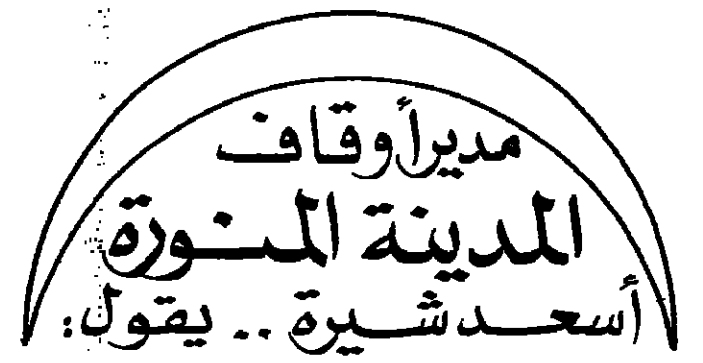 مدير أوقاف
المدينة المنورة
أسعد شيرة .. يقول: